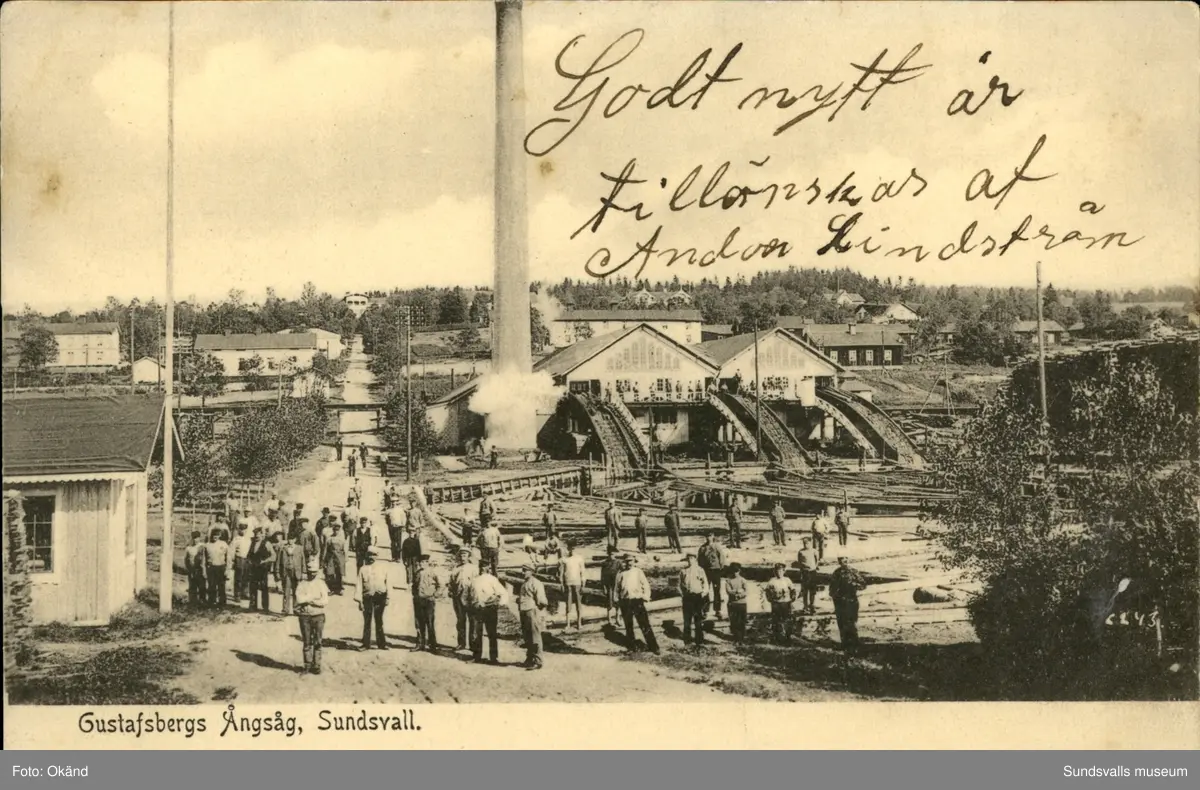 Godt nytt år
tillönskas af
Andor Lindström
6243.
Gustafsbergs Ångsåg, Sundsvall.
Foto: Okänd
Sundsvalls museum